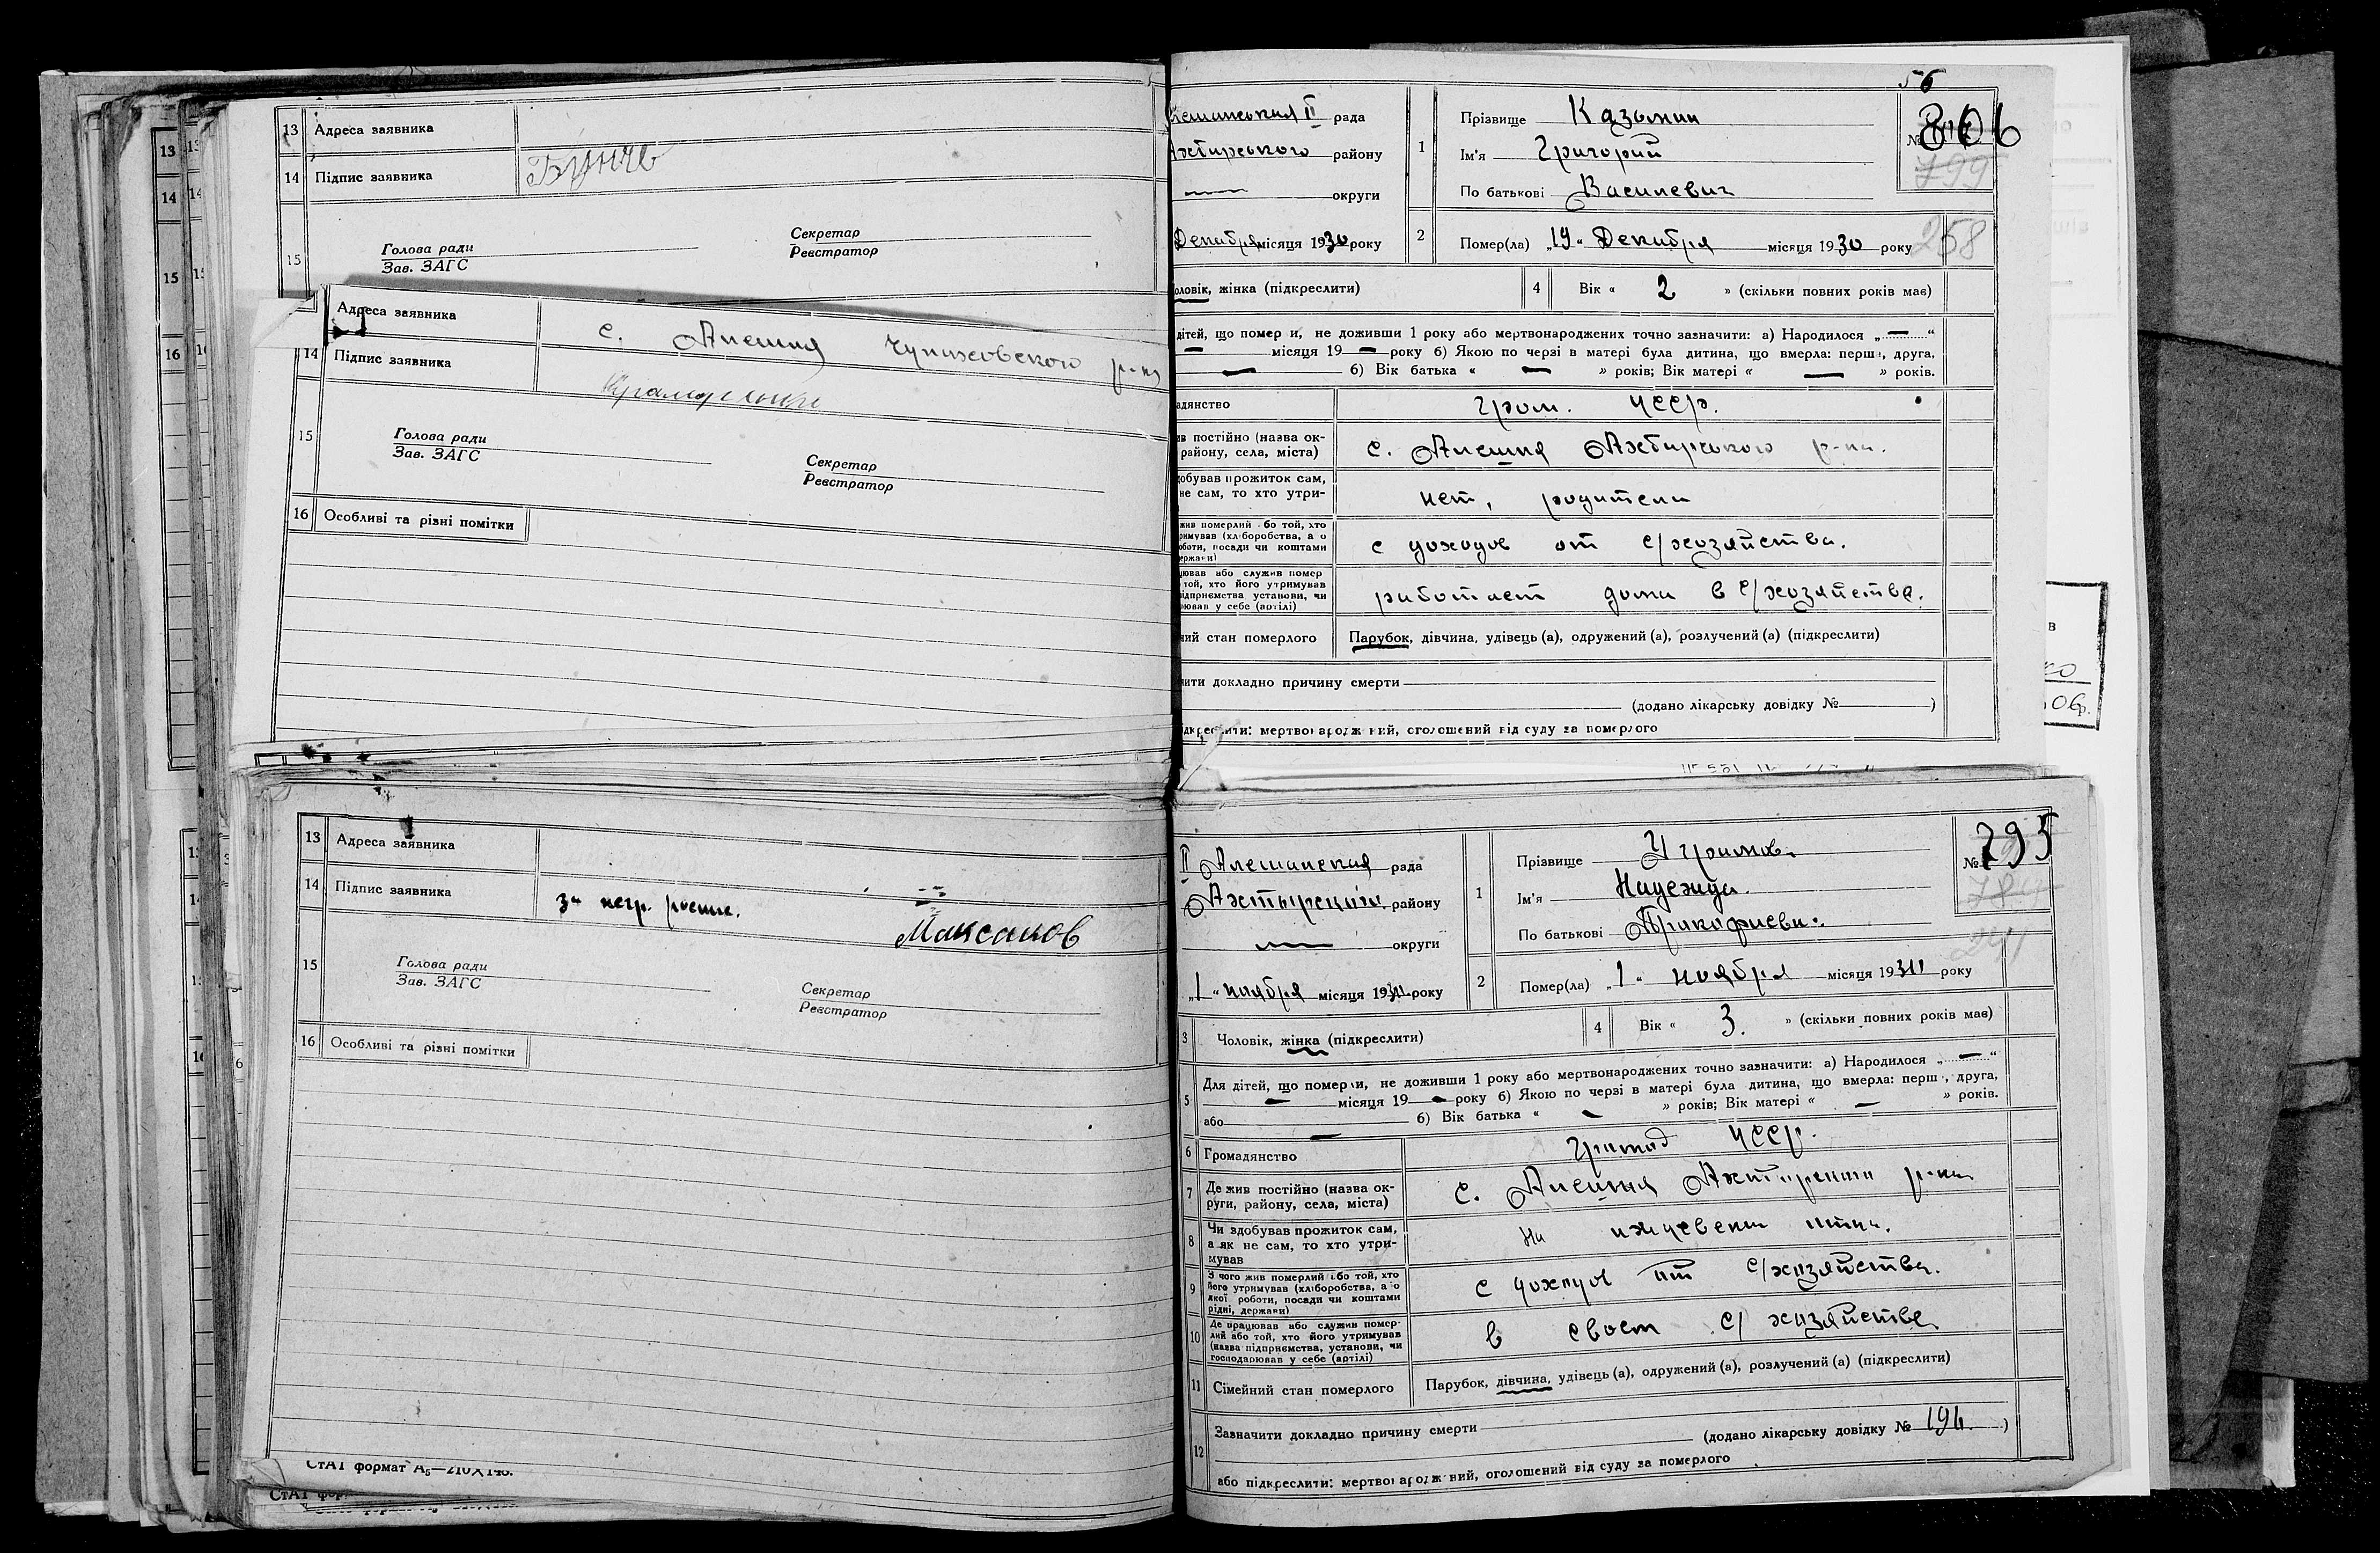 13 Адреса заявника
14 Підпис заявника
15
Голова ради
Зав. ЗАГС
Секретар
Реєстратор
Адреса заявника с. Алешня р-на
14 Підпис заявника
15
Голова ради
Зав. ЗАГС
Секретар
Реєстратор
16 Особливі та різні помітки
56
рада
Ахтирського району
округи
Декабря місяця 1930 року
1
Прізвище Казьмин
Ім'я Григорий
По батькові Василевич
№ 806
799
2 Помер(ла) „19“ Декабря місяця 1930 року
258
оловік, жінка (підкреслити)
4 Вік « 2 » (скільки повних років має)
дітей, що померли, не доживши 1 року або мертвонароджених точно зазначити: а) Народилося „—“
— місяця 19—року б) Якою по черзі в матері була дитина, що вмерла: перша, друга,
— 6) Вік батька « — » років; Вік матері « — » років.
адянство гром. УССР.
ив постійно (назва ок-
району, села, міста) с. Алешня Ахтирського р-на.
добував прожиток сам,
не сам, то хто утри- нет, родители
жив померлий або той, хто
римував (хліборобства, а о
оботи, посади чи коштами
ержави) с доходов от с/хозяйства.
цював або служив помер
той, хто його утримував
ідприємства установи, чи
рював у себе (артілі) работает дома в с/хозяйстве.
ний стан померлого Парубок, дівчина, удівець (а), одружений (а), розлучений (а) (підкреслити)
чити докладно причину смерти
(додано лікарську довідку № )
ідкреслити: мертвонароджений, оголошений від суду за померлого
13 Адреса заявника
14 Підпис заявника за негр.
Максаков
15
Голова ради
Зав. ЗАГС
Секретар
Реєстратор
16 Особливі та різні помітки
СтАТ формат А5—210Х148.
СтАТ фор
II Алешанская рада
Ахтырский району
— округи
„1“ ноября місяця 1930 року
1
Прізвище Угримов.
Ім'я Надежда
По батькові Пракофиевн.
№ 795
2 Помер(ла) „1“ ноября місяця 1930 року
3 Чоловік, жінка (підкреслити)
4 Вік « 3. » (скільки повних років має)
5 Для дітей, що померли, не доживши 1 року або мертвонароджених точно зазначити: а) Народилося „—“
— місяця 19—року б) Якою по черзі в матері була дитина, що вмерла: перша, друга,
або — 6) Вік батька « — » років; Вік матері « — » років.
6 Громадянство громад УССР.
7 Де жив постійно (назва ок-
руги, району, села, міста) с. Алешня р-на
8 Чи здобував прожиток сам,
а як не сам, то хто утри-
мував На иждевении отца.
9 З чого жив померлий або той, хто
його утримував (хліборобства, а о
якої роботи, посади чи коштами
рідні, держави) с доходов от с/хозяйства.
10 Де працював або служив помер-
лий або той, хто його утримував
(назва підприємства, установи, чи
господарював у себе (артілі) в своем с/хозяйстве
11 Сімейний стан померлого Парубок, дівчина, удівець (а), одружений (а), розлучений (а) (підкреслити)
12 Зазначити докладно причину смерти
(додано лікарську довідку № 194.)
або підкреслити: мертвонароджений, оголошений від суду за померлого